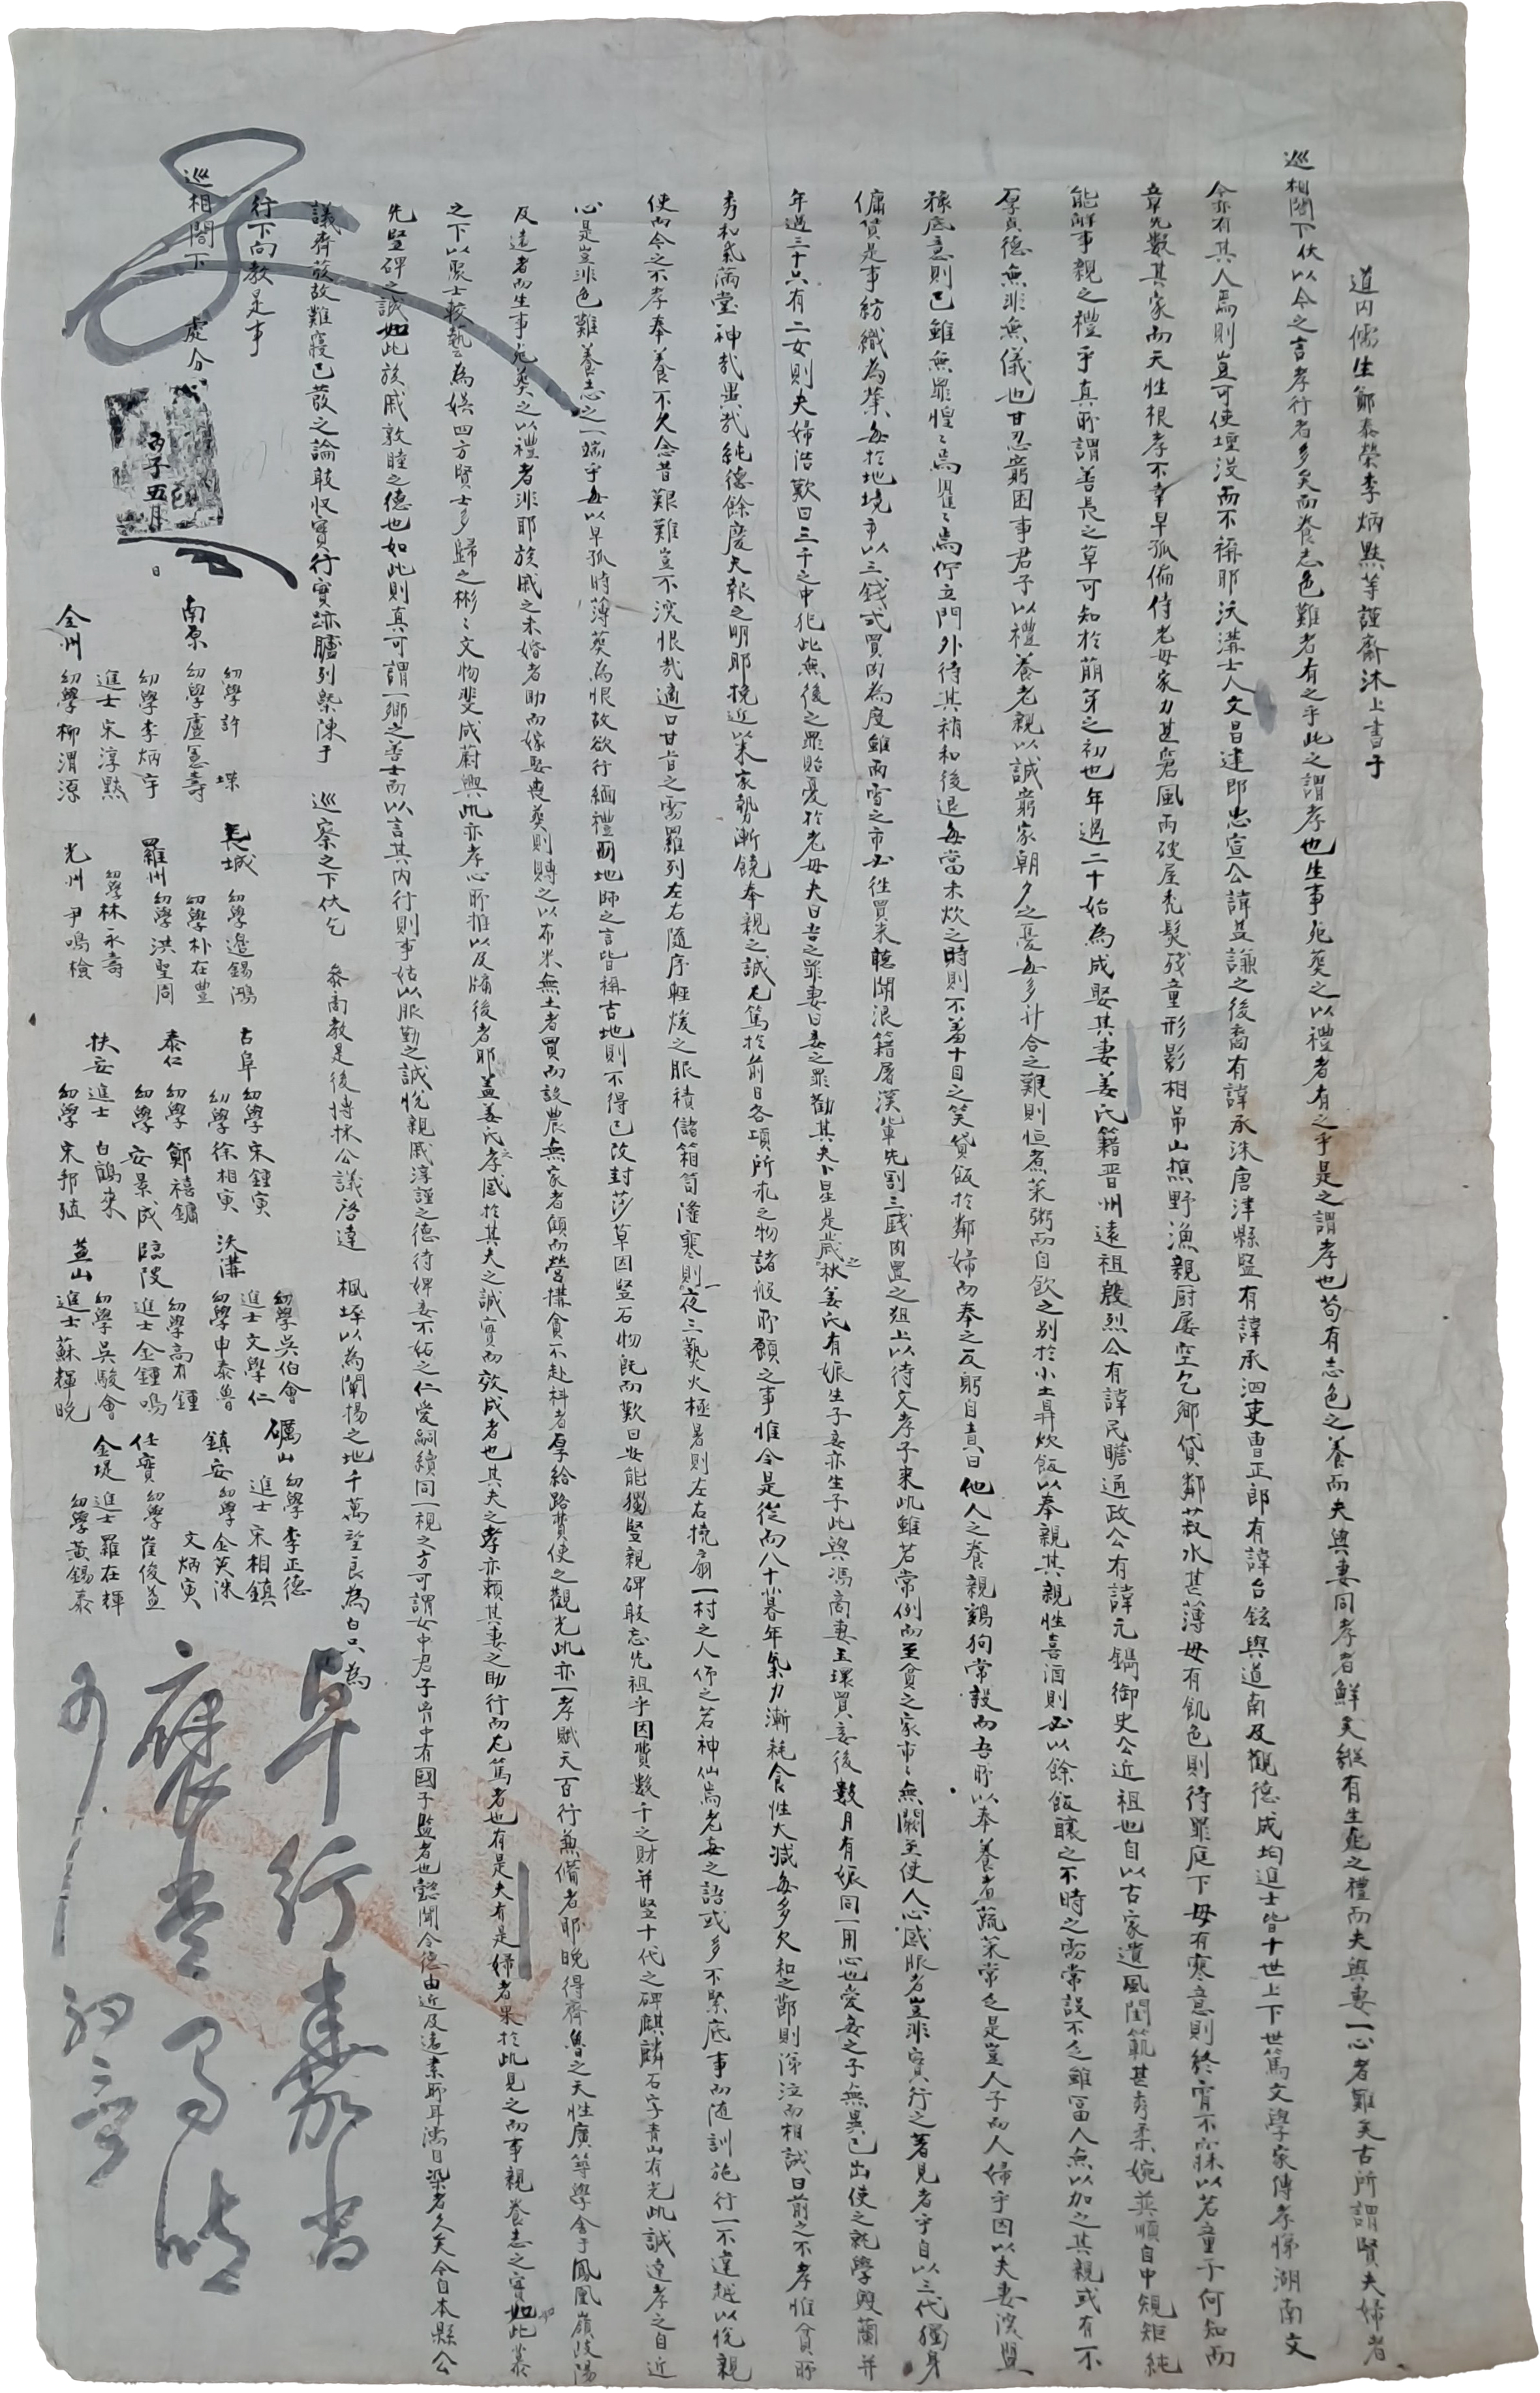 道內儒生鄭泰榮李炳㸃等謹齋沐上書于
巡相閤下伏以今之言孝行者多矣而養志色難者有之乎此之謂孝也生事死葬之以禮者有之乎是之謂孝也苟有志色之養而夫與妻同孝者鮮矣縱有生死之禮而夫與妻一心者難矣古所謂賢夫婦者
今亦有其人焉則豈可使堙沒而不褥耶沃溝士人文昌建卽忠宣公諱益謙之後裔有諱承洙唐津縣監有諱承泗吏曹正郎有諱台鉉與道南及觀德成均進士皆十世上下世篤文學家傳孝悌湖南文
章先數其家而天性根孝不幸早孤偏侍老母家力甚窘風雨破屋禿髮殘童形影相吊山樵野漁親廚屢空乞鄉貸鄰菽水甚薄母有飢色則待罪庭下母有寒意則終宵不寐以若童子何知而
能解事親之禮乎眞所謂善長之草可知於萌芽之初也年過二十始爲成娶其妻姜氏籍晋州遠祖殷烈公有諱民瞻通政公有諱元鐫御史公近祖也自以古家遺風閨範甚秀柔婉英順自中規矩純
厚貞德無非無儀也甘忍窮困事君子以禮養老親以誠窮家朝夕之憂每多升合之艱則恒煮菜粥而自飮之別於小土鼎炊飯以奉親其親性喜酒則必以餘飯釀之不時之需常設不乏雖富人無以加之其親或有不
穌底意則已雖無罪惶惶焉瞿瞿焉佇立門外待其稍和後退每當未炊之時則不羞十目之笑貸飯於鄰婦而奉之反躬自責曰他人之養親鷄狗常設而吾所以奉養者蔬菜常乏是豈人子而人婦乎因以夫妻深盟
傭賃是事紡織爲業每於地境市以三錢式買肉爲度雖雨雪之市必徃買來聽聞浪籍屠漢輩先割三戔肉置之俎上以待文孝子來此雖若常例而至貧之家市市無闕至使人心感服者豈非實行之著見者乎自以三代獨身
年過三十只有二女則夫婦浩歎曰三千之中犯此無後之罪貽憂於老母夫曰吾之罪妻曰妾之罪勸其夫卜星是歲之秋姜氏有娠生子妾亦生子此與馮商妻玉環買妾後數月有娠同一用心也愛妾之子無異己出使之就學雙蘭幷
秀和氣滿堂神哉異哉純德餘慶天報之明耶挽近以來家勢漸饒奉親之誠尤篤於前日各項所求之物諸般所願之事惟令是從而八十暮年氣力漸耗食性大減每多欠和之節則涕泣而相誠曰前之不孝惟貧所
使而今之不孝奉養不久念昔艱難豈不深恨哉適口甘旨之需羅列左右隨序輕煖之服積儲箱筍隆寒則一夜三爇火極暑則左右撓扇一村之人仰之若神仙焉老母之語或多不緊底事而隨訓施行一不違越以悅親
心是豈非色難養志之一端乎每以早孤時薄葬爲恨故欲行緬禮而地師之言皆稱吉地則不得已改封莎草因竪石物旣而歎曰安能獨竪親碑敢忘先祖乎因費數千之財幷竪十代之碑麒麟石字靑山有光此誠達孝之自近
及遠者而生事死葬之以禮者非耶族戚之未婚者助而嫁娶喪葬則賻之以布米無土者買而設農無家者傾而營構貧不赴科者厚給路費使之觀光此亦一孝賦天百行兼備者耶晩得齊魯之天性廣等學舍于鳳凰嶺歧陽
之下以聚士較藝爲娛四方賢士多歸之彬彬文物斐成蔚興此亦孝心所推以及牖後者耶盖姜氏之孝感於其夫之誠實而效成者也其夫之孝亦賴其妻之助行而尤篤者也有是夫有是婦者果於此見之而事親養志之實如此慕
先竪碑之誠如此族戚敦睦之德也如此則眞可謂一鄕之善士而以言其內行則事姑以服勤之誠悅親戚淳謹之德待婢妾不妬之仁愛嗣續同一視之方可謂女中君子胷中有國子監者也懿聞令德由近及遠素所耳濡目染者久矣今自本縣公
議齊發故難寢已發之論敢收實行實跡臚列槩陳于 巡察之下伏乞 叅商敎是後博採公議啓達 楓墀以爲闡揚之地千萬望良爲白只爲
行下向敎是事
巡相閤下 處分
丙子五月 日
南原 幼學許堞
幼學盧憲壽
幼學李炳宇
進士宋淳㸃
全州 幼學柳渭源
長城 幼學邊錫鴻
幼學朴在豊
羅州 幼學洪聖周
幼學林永壽
光州 尹鳴儉
古阜 幼學宋鍾寅
幼學徐相寅
泰仁 幼學鄭禧鏞
幼學安景成
扶安 進士白鶴來
幼學宋邦殖
沃溝 幼學吳伯會
進士文學仁
幼學申泰魯
臨陂 幼學高有鍾
進士金鍾鳴
幼學吳駿會
益山 進士蘇輝晩
礪山 幼學李正德
進士宋相鎭
鎭安 幼學金英洙
文炳寅
任實 幼學崔俊益
金堤 進士羅在輝
幼學黃錫泰
卓行